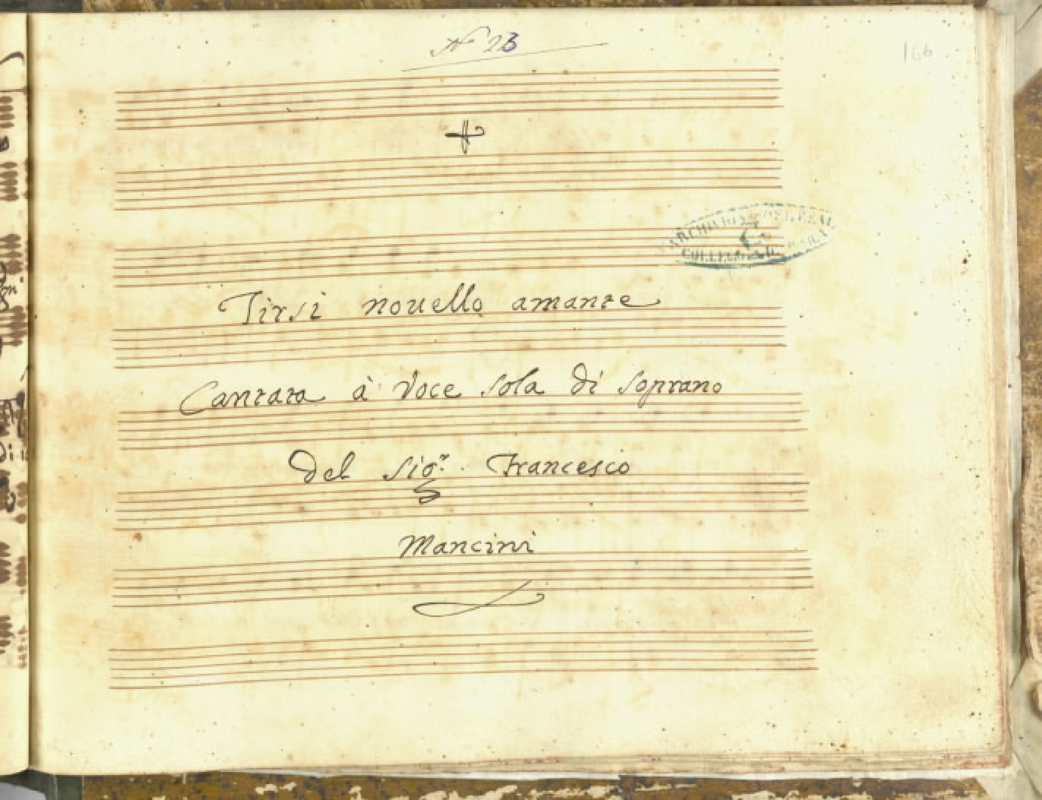 N 23
166
ARCHIVIO DEL REAL
COLLEGIO
Tirsi nouello amante
Cantata à Voce sola di soprano
del Sig.r Francesco
Mancini